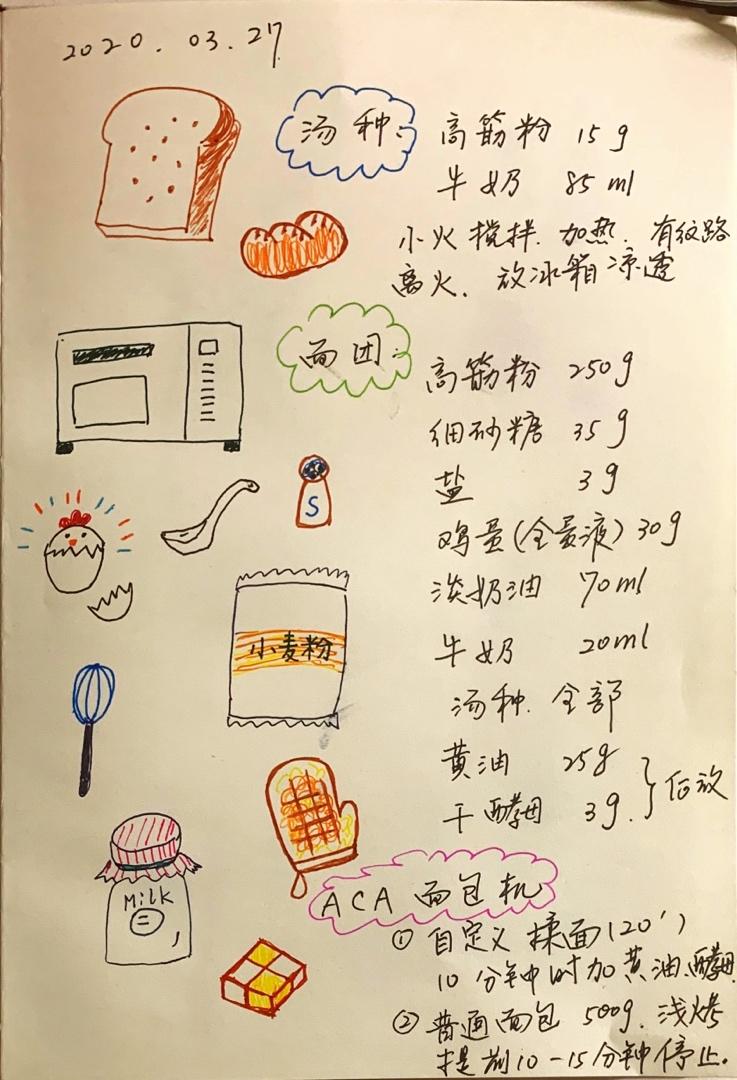 2020.03.27
汤种:
高筋粉 15g
牛奶 85ml
小火搅拌.加热.有纹路
离火.放冰箱凉透
面团:
高筋粉 250g
细砂糖 35g
盐 3g
鸡蛋(全蛋液)30g
淡奶油 70ml
牛奶 20ml
汤种.全部
黄油 25g
干酵母 3g.
}后放
S
小麦粉
Milk
ACA 面包机
① 自定义 揉面(20')
10分钟时加黄油.酵母.
② 普通面包 500g.浅烤
提前10-15分钟停止.